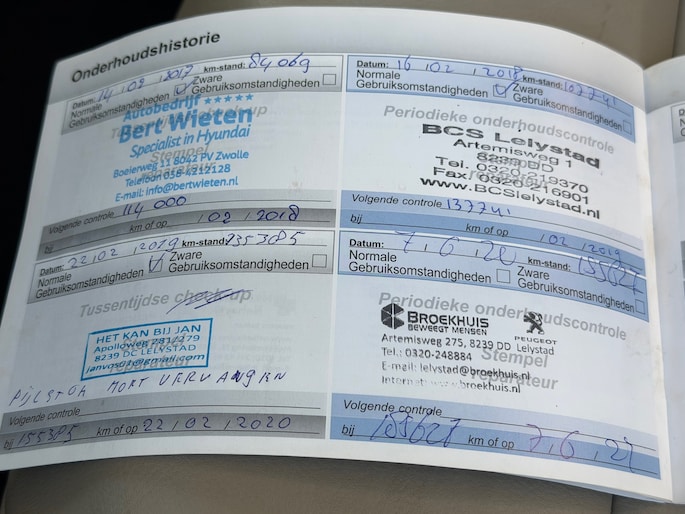 Onderhoudshistorie
Datum: 14 , 02 , 2017 km-stand: 84069
Normale Zware
Gebruiksomstandigheden Gebruiksomstandigheden
Autobedrijf ★★★★★
Bert Wieten
Specialist in Hyundai
Stempel
Boeierweg 11 8042 PV Zwolle
Telefoon 038-4212128
E-mail: info@bertwieten.nl
Volgende controle 114 000
bij km of op / 02 / 2018
Datum: 16 , 02 , 2018 km-stand: 107741
Normale Zware
Gebruiksomstandigheden Gebruiksomstandigheden
Periodieke onderhoudscontrole
BCS Lelystad
Artemisweg 1
8239 DD
Tel. 0320-219370
Fax. 0320-216901
www.BCSlelystad.nl
Volgende controle 137741
bij km of op / 02 / 2019
Datum: 22 , 02 , 2019 km-stand: 135385
Normale Zware
Gebruiksomstandigheden Gebruiksomstandigheden
Tussentijdse check-up
HET KAN BIJ JAN
Apolloweg 281/279
8239 DC LELYSTAD
janvos03@gmail.com
Volgende controle
bij 155385 km of op 22 / 02 / 2020
Datum: 7 , 6 , 21 km-stand: 155627
Normale Zware
Gebruiksomstandigheden Gebruiksomstandigheden
Periodieke onderhoudscontrole
BROEKHUIS
BEWEEGT MENSEN
PEUGEOT
Artemisweg 275, 8239 DD Lelystad
Stempel
Tel.: 0320-248884
reparateur
E-mail: lelystad@broekhuis.nl
Internet: www.broekhuis.nl
Volgende controle
bij 185627 km of op 7 , 6 , 22